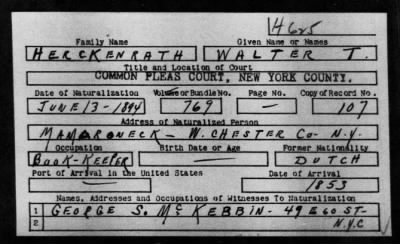 14625
Family Name Given Name or Names
HERCKENRATH WALTER T.
Title and Location of Court
COMMON PLEAS COURT, NEW YORK COUNTY.
Date of Naturalization Volume or Bundle No. Page No. Copy of Record No.
JUNE 13-1894 769 — 107
Address of Naturalized Person
MAMARONECK - W. CHESTER Co- N.Y.
Occupation Birth Date or Age Former Nationality
BOOK-KEEPER — DUTCH
Port of Arrival in the United States Date of Arrival
— 1853
Names, Addresses and Occupations of Witnesses To Naturalization
1 GEORGE S. McKEBBIN - 49 E 60 ST-
2 N.Y.C